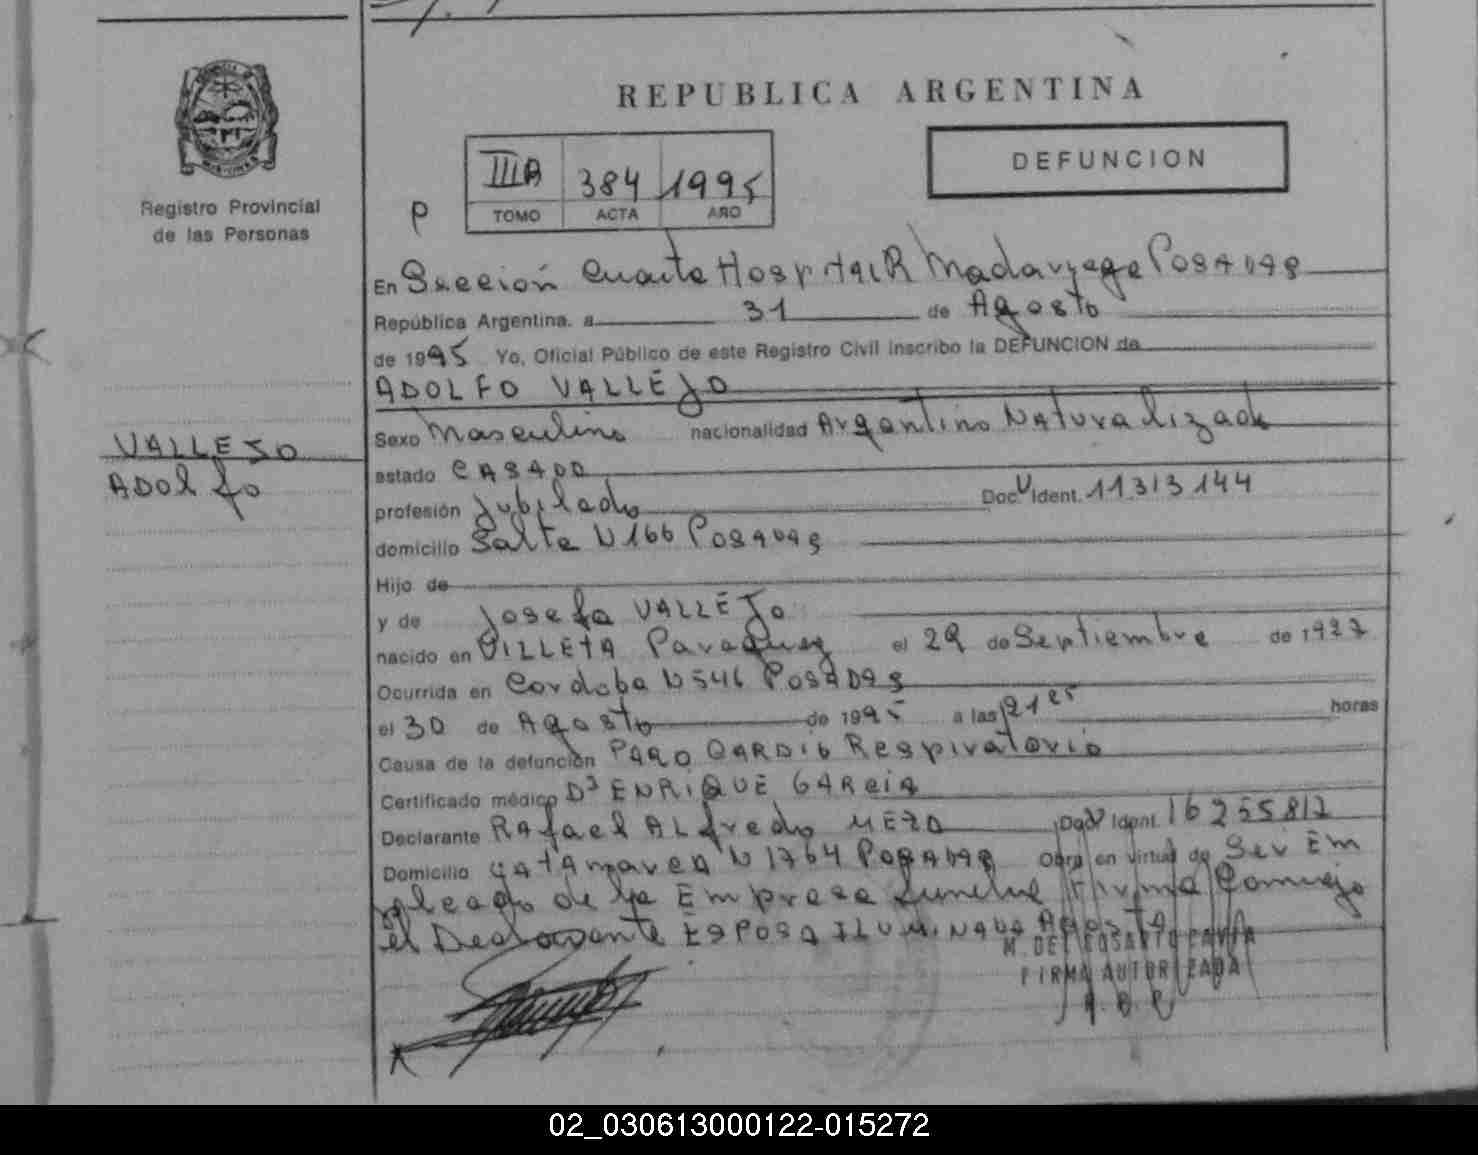 REPUBLICA ARGENTINA
DEFUNCION
IIIB 384 1995
TOMO ACTA AÑO
P
Registro Provincial
de las Personas
En Sección Cuarta Hospital R Madaryaga Posadas
República Argentina, a 31 de Agosto
de 1995 Yo, Oficial Público de este Registro Civil inscribo la DEFUNCION de
ADOLFO VALLEJO
VALLEJO
Adolfo
Sexo Masculino nacionalidad Argentino Naturalizado
estado CASADO
profesión Jubilado Doc U Ident. 11.313.144
domicilio Salta N 166 Posadas
Hijo de
y de Josefa VALLEJO
nacido en VILLETA Paraguay el 29 de Septiembre de 1927
Ocurrida en Cordoba N 546 Posadas
el 30 de Agosto de 1995 a las 21 25 horas
Causa de la defunción PARO CARDIO Respiratorio
Certificado médico Dr ENRIQUE GARCIA
Declarante Rafael Alfredo MEZA Doc U Ident. 16255812
Domicilio Catamarca N 1764 Posadas Obra en virtud de Ser Em
pleado de la Empresa Funebre Firma Conmigo
el Declarante Esposa ILUMINADA Agosta
M. DEL ROSARIO PAVIA
FIRMA AUTORIZADA
02_030613000122-015272